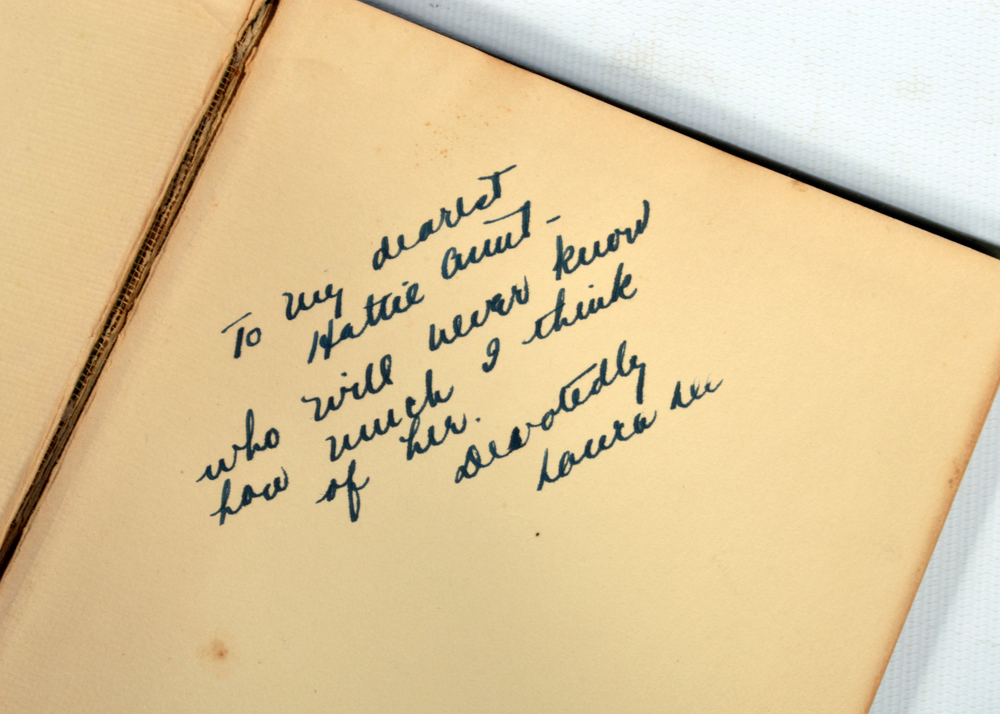 To my dearest
Hattie Aunt -
who will never know
how much I think
of her.
Devotedly
Laura Lee